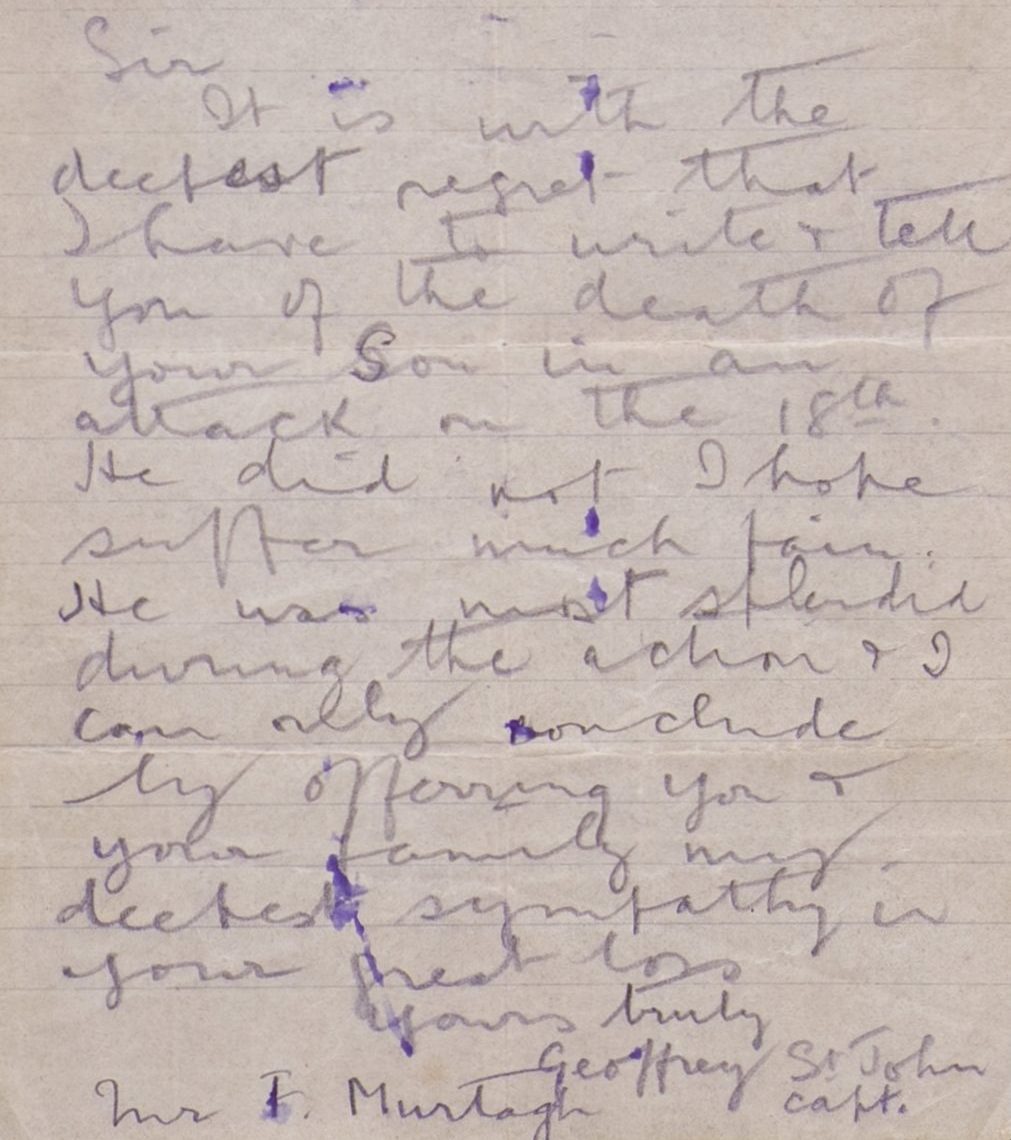 Sir
It is with the
deepest regret that
I have to write & tell
you of the death of
your Son in an
attack on the 18th.
He did not I hope
suffer much pain.
He was most splendid
during the action & I
can only conclude
by offering you &
your family my
deepest sympathy in
your great loss
yours truly
Geoffrey St John
capt.
Mr F. Murtagh